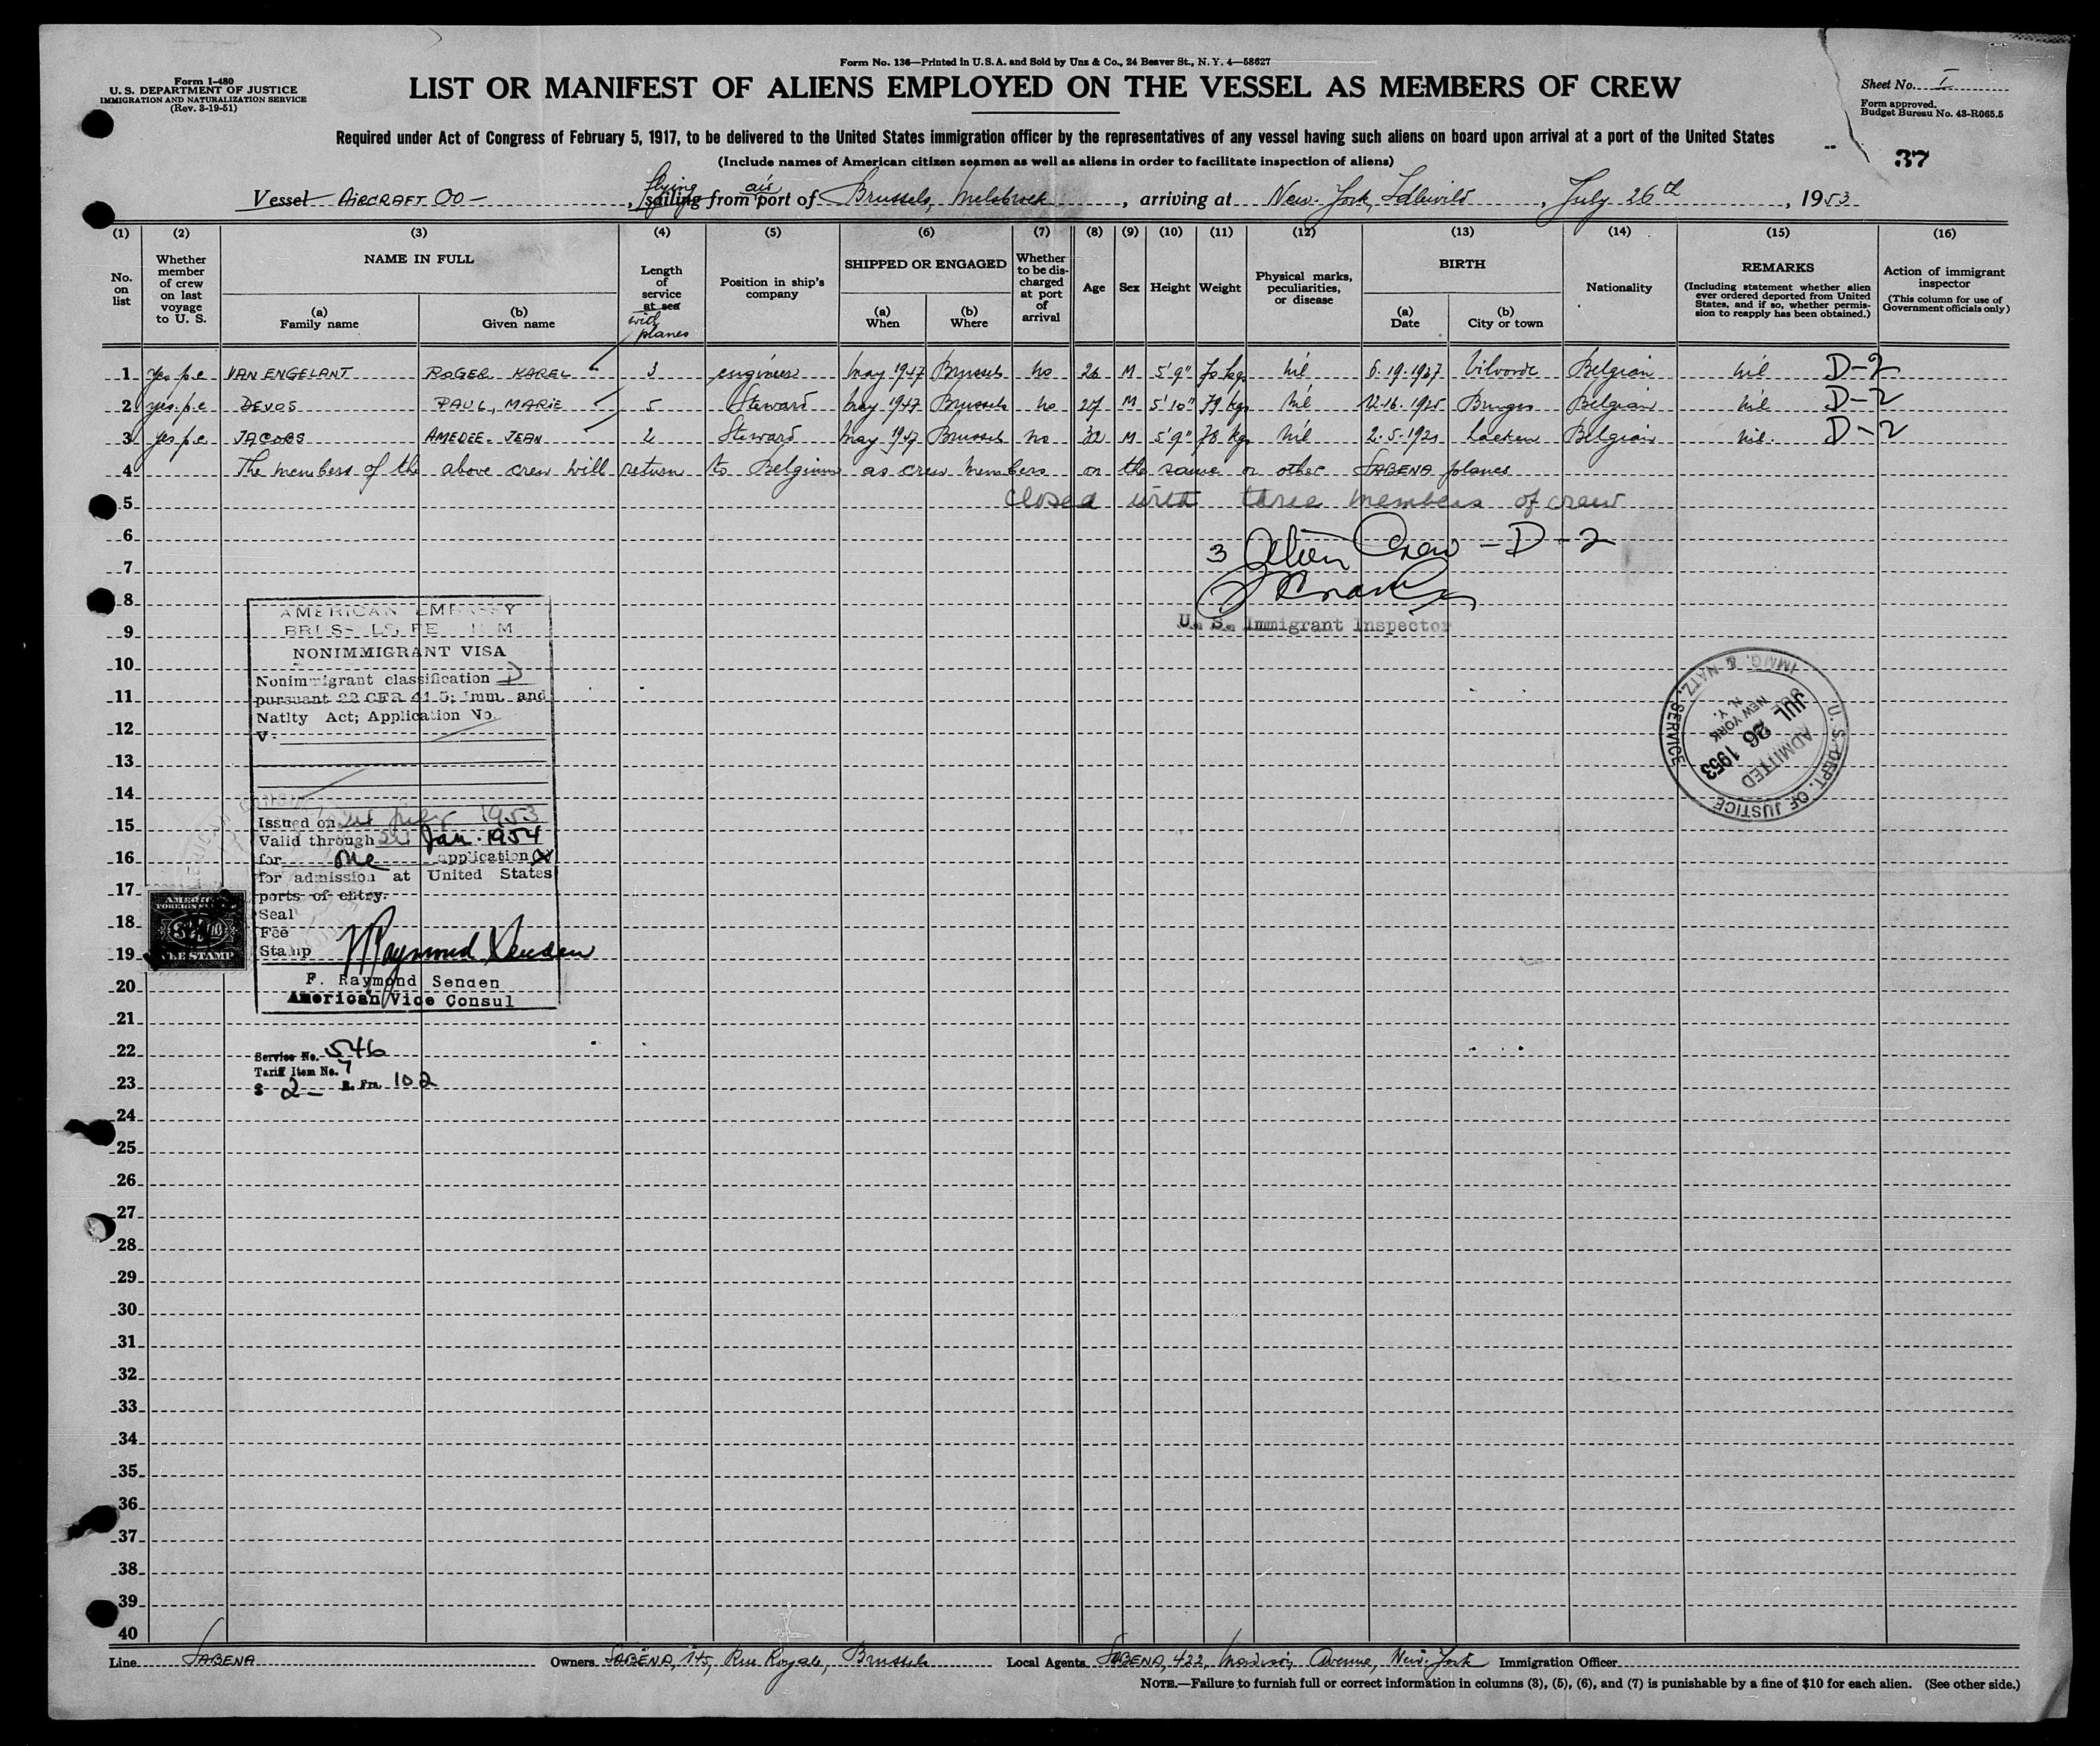 Form No. 136—Printed in U.S.A. and Sold by Unz & Co., 24 Beaver St., N. Y. 4—58627
Form I-480
U. S. DEPARTMENT OF JUSTICE
IMMIGRATION AND NATURALIZATION SERVICE
(Rev. 3-19-51)
LIST OR MANIFEST OF ALIENS EMPLOYED ON THE VESSEL AS MEMBERS OF CREW
Sheet No. I
Form approved.
Budget Bureau No. 43-R065.5
Required under Act of Congress of February 5, 1917, to be delivered to the United States immigration officer by the representatives of any vessel having such aliens on board upon arrival at a port of the United States
(Include names of American citizen seamen as well as aliens in order to facilitate inspection of aliens)
37
Vessel AIRCRAFT OO- , flying sailing from air port of Brussels, Melsbroek , arriving at New-York, Idlewild , July 26th , 1953
(1) (2) (3) (4) (5) (6) (7) (8) (9) (10) (11) (12) (13) (14) (15) (16)
No. on list
Whether member of crew on last voyage to U. S.
NAME IN FULL
(a) Family name
(b) Given name
Length of service at sea with planes
Position in ship's company
SHIPPED OR ENGAGED
(a) When
(b) Where
Whether to be discharged at port of arrival
Age
Sex
Height
Weight
Physical marks, peculiarities, or disease
BIRTH
(a) Date
(b) City or town
Nationality
REMARKS
(Including statement whether alien ever ordered deported from United States, and if so, whether permission to reapply has been obtained.)
Action of immigrant inspector
(This column for use of Government officials only)
1 yes p.c VAN ENGELANT ROGER KAREL 3 engineer May 1947 Brussels no 26 M 5'9" 70 kgs nil 6.19.1927 Vilvorde Belgian nil D-2
2 yes p.c DEVOS PAUL, MARIE 5 Steward May 1947 Brussels no 27 M 5'10" 79 kgs nil 12.16.1925 Bruges Belgian nil D-2
3 yes p.c JACOBS AMEDEE-JEAN 2 Steward May 1947 Brussels no 32 M 5'9" 78 kgs nil 2.5.1921 Laeken Belgian nil. D-2
4 The members of the above crew will return to Belgium as crew members on the same or other SABENA planes
5 closed with three members of crew
6 3 Alien Crew - D-2
7
8
U. S. Immigrant Inspector
9
10
11
12
13
14
15
16
17
18
19
20
21
22
23
24
25
26
27
28
29
30
31
32
33
34
35
36
37
38
39
40
AMERICAN EMBASSY
BRUSSELS, BELGIUM
NONIMMIGRANT VISA
Nonimmigrant classification D
pursuant 22 CFR 41.5; Imm. and
Natlty Act; Application No.
V-
Issued on July 1953
Valid through Jan. 1954
for One application
for admission at United States
ports of entry.
Seal
Fee
Stamp Raymond Senden
F. Raymond Senden
American Vice Consul
Service No. 546
Tariff Item No. 7
$ 2- B. Frs. 102
U. S. DEPT. OF JUSTICE
IMMIG. & NATZ. SERVICE
ADMITTED
JUL 26 1953
NEW YORK
N. Y.
Line SABENA
Owners SABENA, 145, Rue Royale, Brussels
Local Agents SABENA, 422, Madison Avenue, New-York
Immigration Officer
NOTE.—Failure to furnish full or correct information in columns (3), (5), (6), and (7) is punishable by a fine of $10 for each alien. (See other side.)